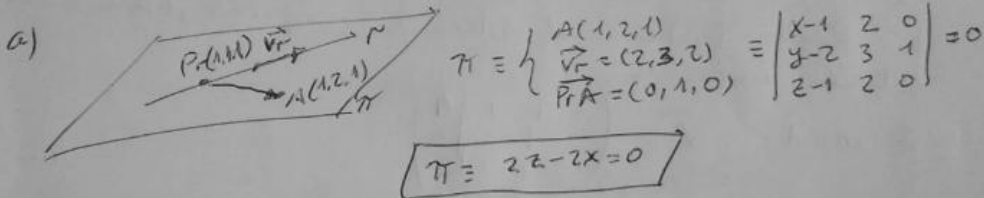 a)
Pr(1,1,1) v⃗r r
A(1,2,1)
π
π ≡ { A(1,2,1)
v⃗r = (2,3,2)
PrA⃗ = (0,1,0)
≡ | x-1 2 0 |
| y-2 3 1 | = 0
| z-1 2 0 |
π ≡ 2z-2x=0